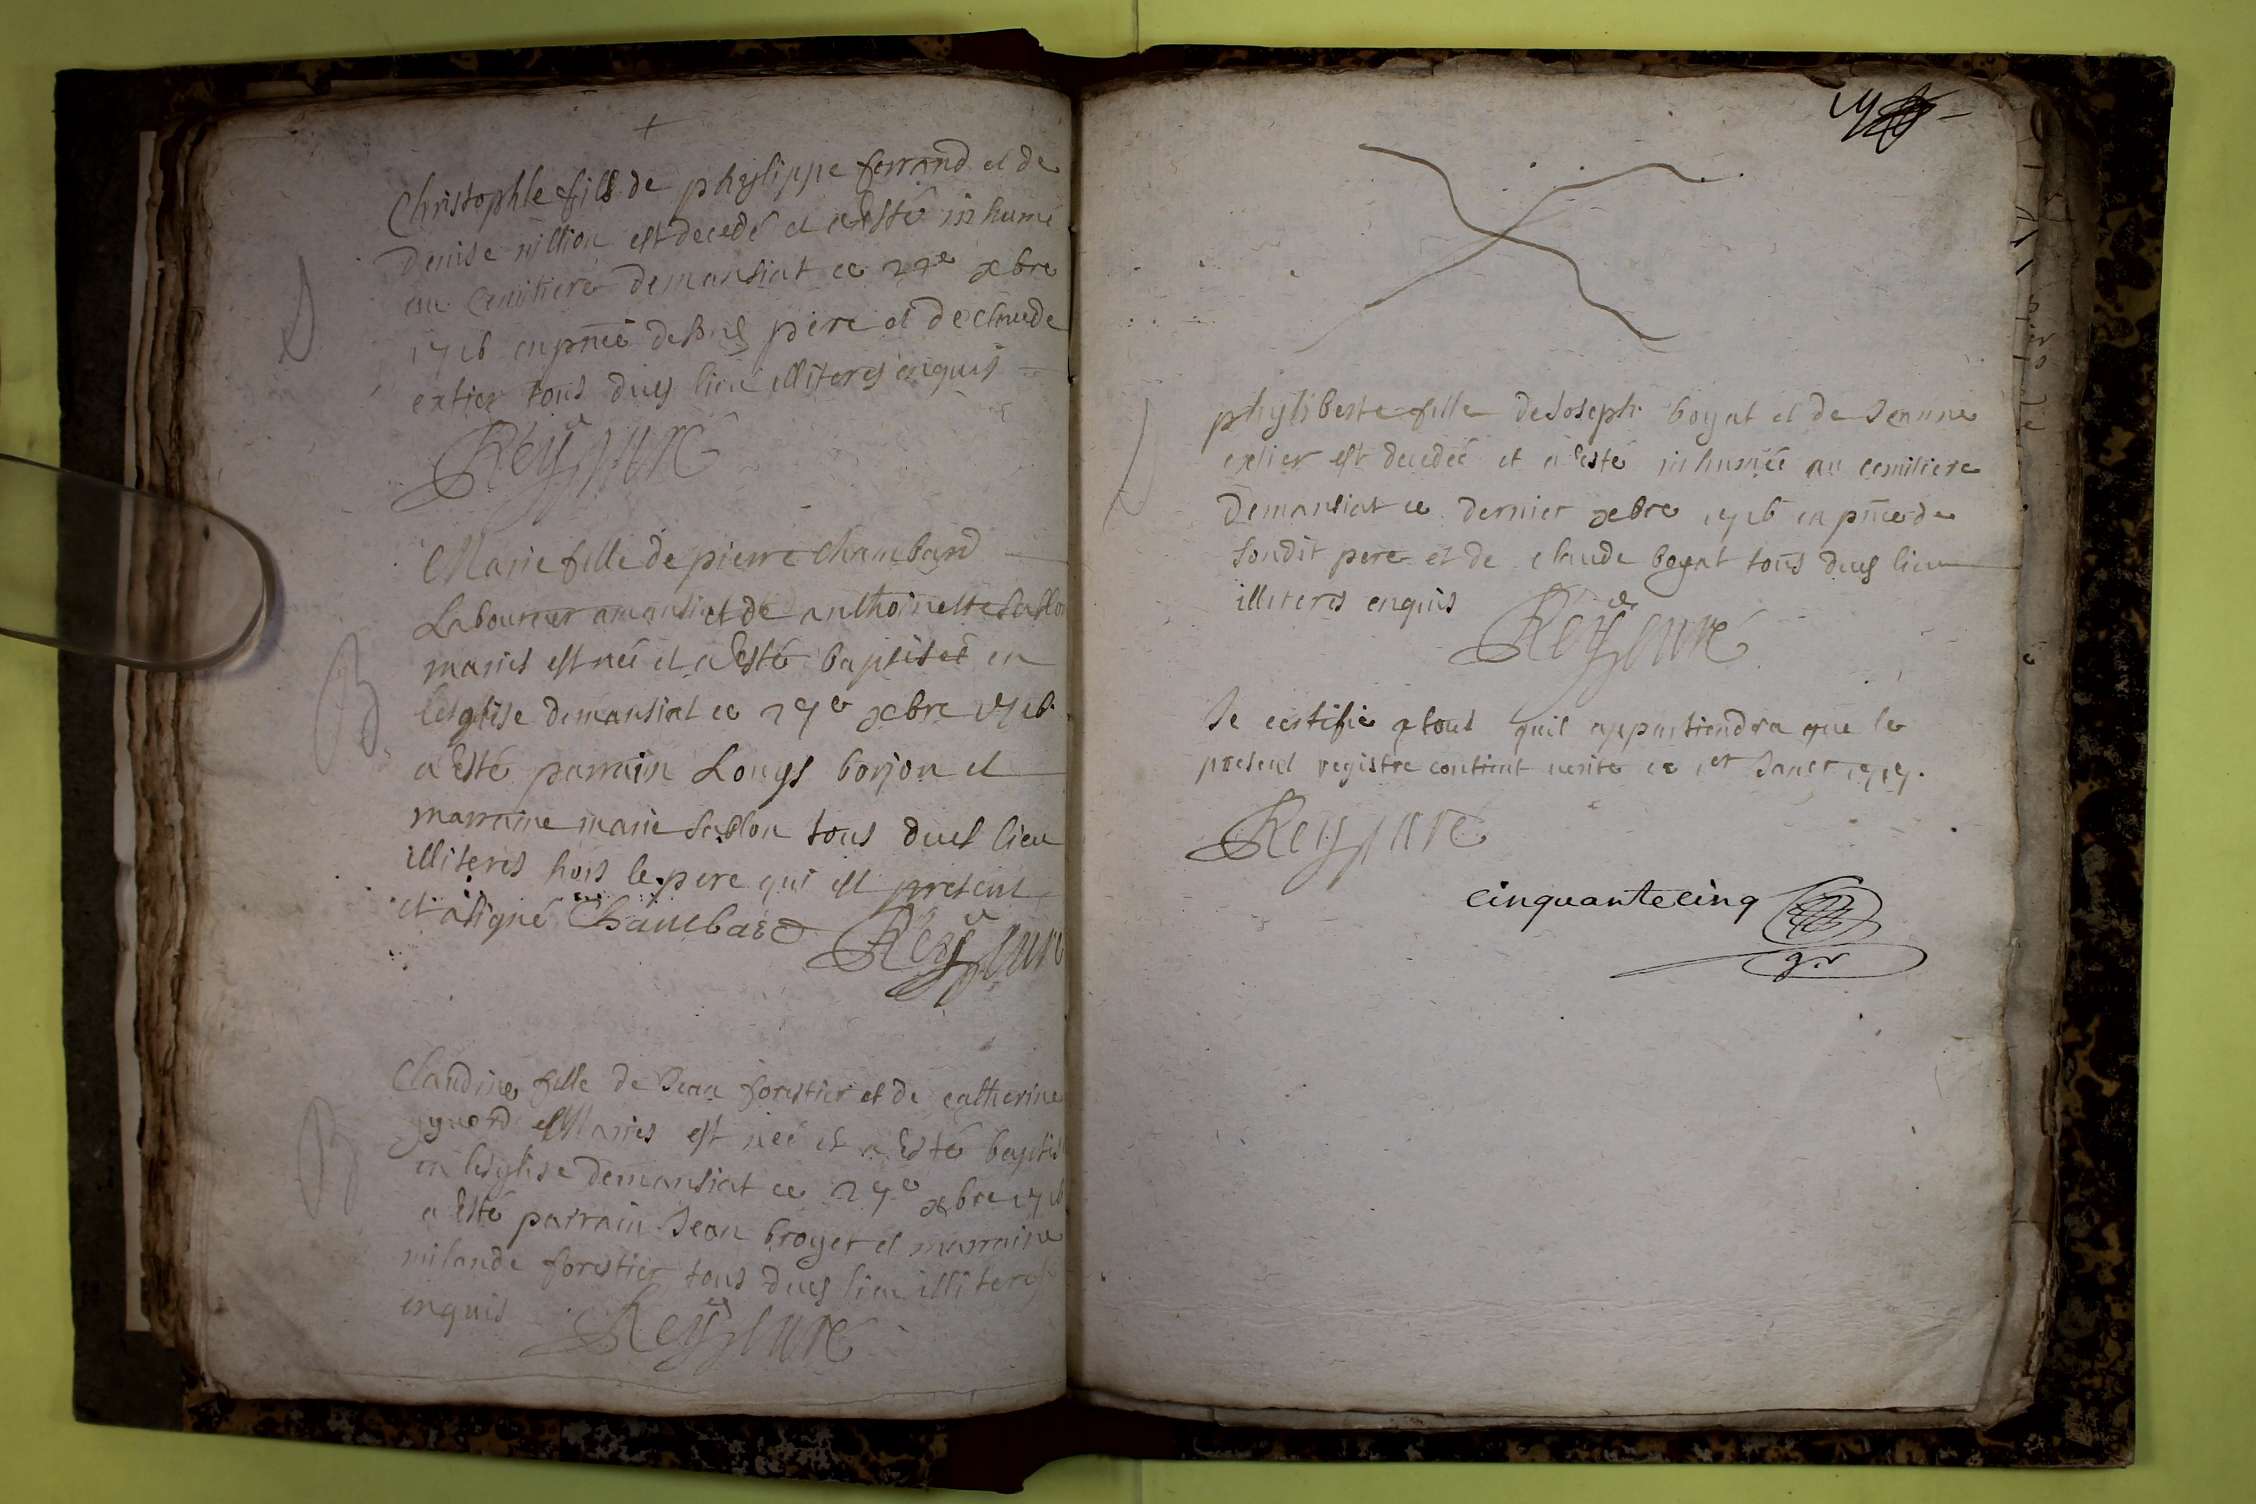 Christophle fils de phylippe ferrand et de
denise nillion est decedé et a Esté inhumé
au cemitiere demansiat ce 27e xbre
1716 en pñce de sond père et de claude
extier tous dues lieu illiteres enquis
Rey Curé
D
Marie fille de pierre Chambard
Laboureur amansiat et de anthoinette sablon
maries est née et a Esté baptisée en
lesglise demansiat ce 27e xbre 1716
a Esté parrain Louys borjon et
marraine marie sablon tous dues lieu
illiteres hors le pere qui est present
et a signé Chambard Rey Curé
B
Claudine fille de Jean forestier et de catherine
maries est née et a Esté baptis
en lesglise demansiat ce 27e xbre 1716
a Esté parrain Jean broyer et marraine
milande forestier tous dues lieu illiteres
enquis Rey Curé
B
phyliberte fille de Joseph boyat et de Jeanne
extier est decedée et a Esté inhumée au cemitiere
demansiat ce dernier xbre 1716 en pñce de
sondit pere et de claude boyat tous dues lieu
illiteres enquis Rey Curé
D
Je certifie a tout quil appartiendra que le
present registre contient verité ce 1er Janer 1717.
Rey Curé
cinquantecinq